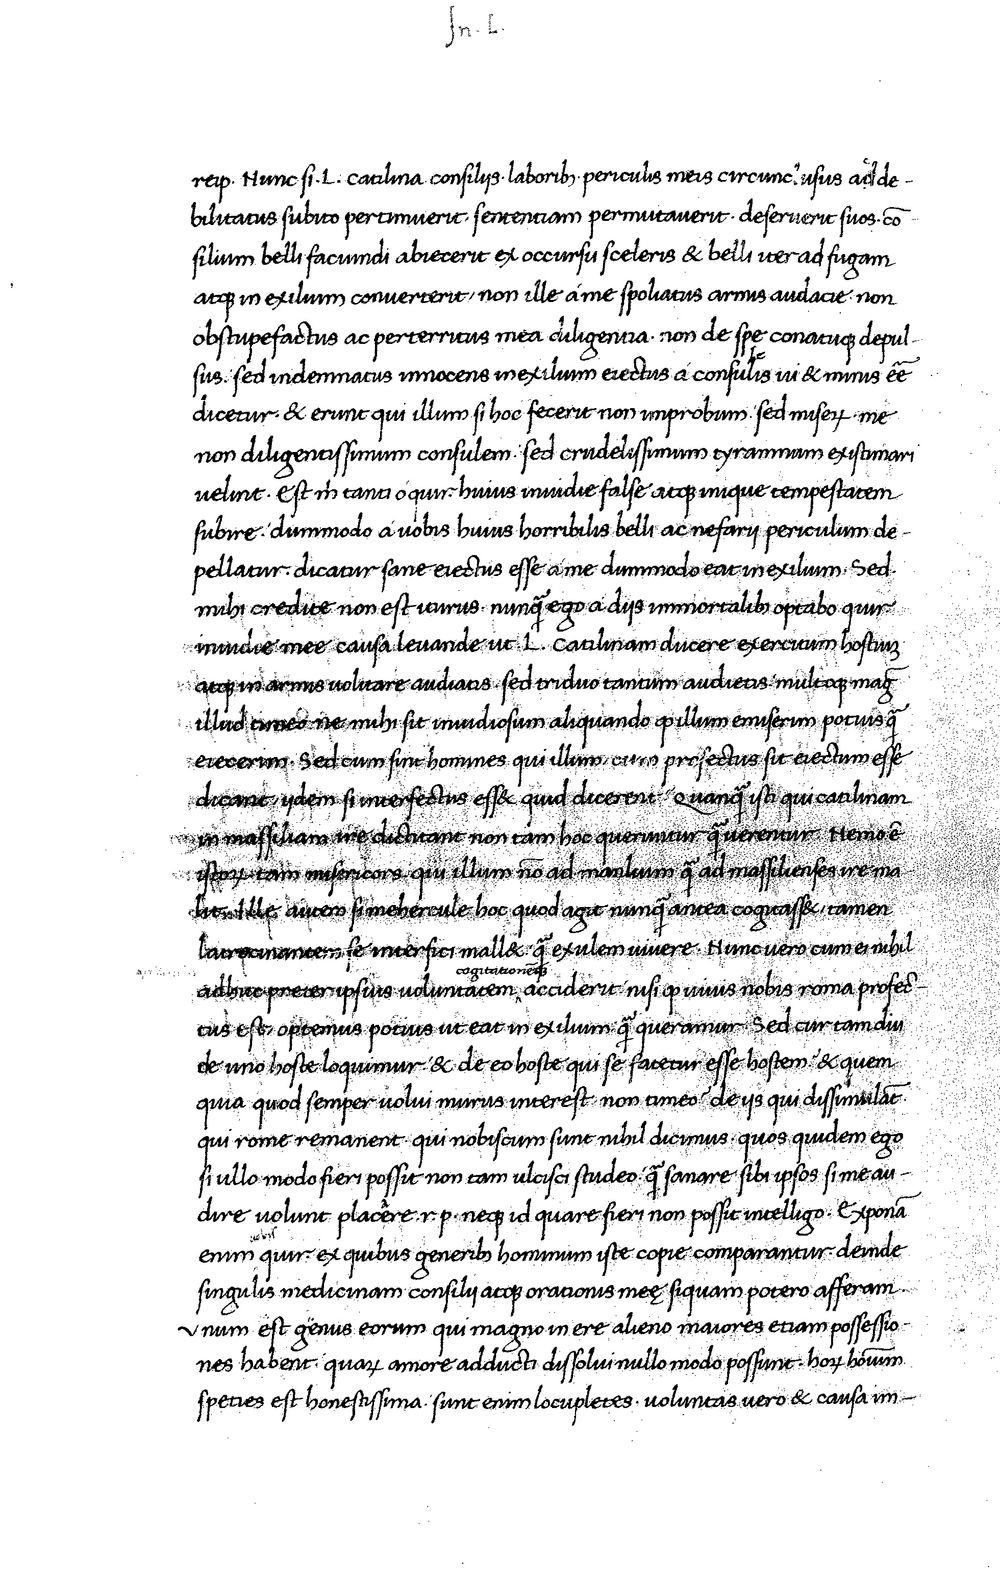 In. L.
reip. Nunc si. L. catilina consilijs. laborib; periculis meis circunc usus ad de-
bilitatus subito pertimuerit. sententiam permutauerit. deseruerit suos. cō
silium belli faciundi abiecerit ex occursu sceleris & belli iter ad fugam
atq; in exilium converterit, non ille á me spoliatus armis audacie. non
obstupefactus ac perterritus mea diligentia. non de spe conatuq; depul-
sus. sed indemnatus innocens in exilium eiectus á consule ui & minis eē
dicetur. & erunt qui illum si hoc fecerit non improbum. sed miseꝝ. me
non diligentissimum consulem. sed crudelissimum tyramnum existimari
uelint. Est m̄ tanti ó quir. huius inuidie false atq; inique tempestatem
subire. dummodo á uobis huius horribilis belli ac nefarij periculum de-
pellatur. dicatur sane eiectus esse á me dummodo eat in exilium. Sed
mihi credite non est iturus. nunq̄ ego a dijs immortalib; optabo quir
inuidie mee causa leuande ut. L. Catilinam ducere exercitum hostiuȝ
atq; in armis uolitare audiatis. sed triduo tantum audietis multoq; mag̅
illud timeo ne mihi sit inuidiosum aliquando ꝙ illum emiserim potius q̄
eiecerim. Sed cum sint homines qui illum cum profectus sit eiectum esse
dicant, ijdem si interfectus ess& quid dicerent? Quanq̄ isti qui catilinam
in massiliam ire dictitant non tam hoc queruntur q̄ uerentur. Nemo ē
istoꝝ tam misericors qui illum nō ad manlium q̄ ad massilienses ire ma
lit. Ille autem si mehercule hoc quod agit nunq̄ antea cogitass&, tamen
latrocinantem se interfici mall& q̄ exulem uiuere. Nunc uero cum ei nihil
cogitationēq;
adhuc preter ipsius uoluntatem acciderit nisi ꝙ uiuus nobis roma profec-
tus est, optemus potius ut eat in exilium q̄ queramur. Sed cur tam diu
de uno hoste loquimur. & de eo hoste qui se fatetur esse hostem & quem
quia quod semper uolui murus interest non timeo? de ijs qui dissimulāt.
qui rome remanent qui nobiscum sunt nihil dicimus. quos quidem ego
si ullo modo fieri possit non tam ulcisci studeo. q̄ sanare sibi ipsos si me au-
dire uolunt placere. r. p. neq; id quare fieri non possit intelligo. Exponā
enim quir. ex quibus generib; hominum iste copie comparantur. deinde
singulis medicinam consilij atq; orationis meę siquam potero afferam.
vnum est genus eorum qui magno in ere alieno maiores etiam possessio-
nes habent. quaꝝ amore adducti dissolui nullo modo possunt. hoꝝ hoīum
speties est honestissima. sunt enim locupletes. uoluntas uero & causa im-